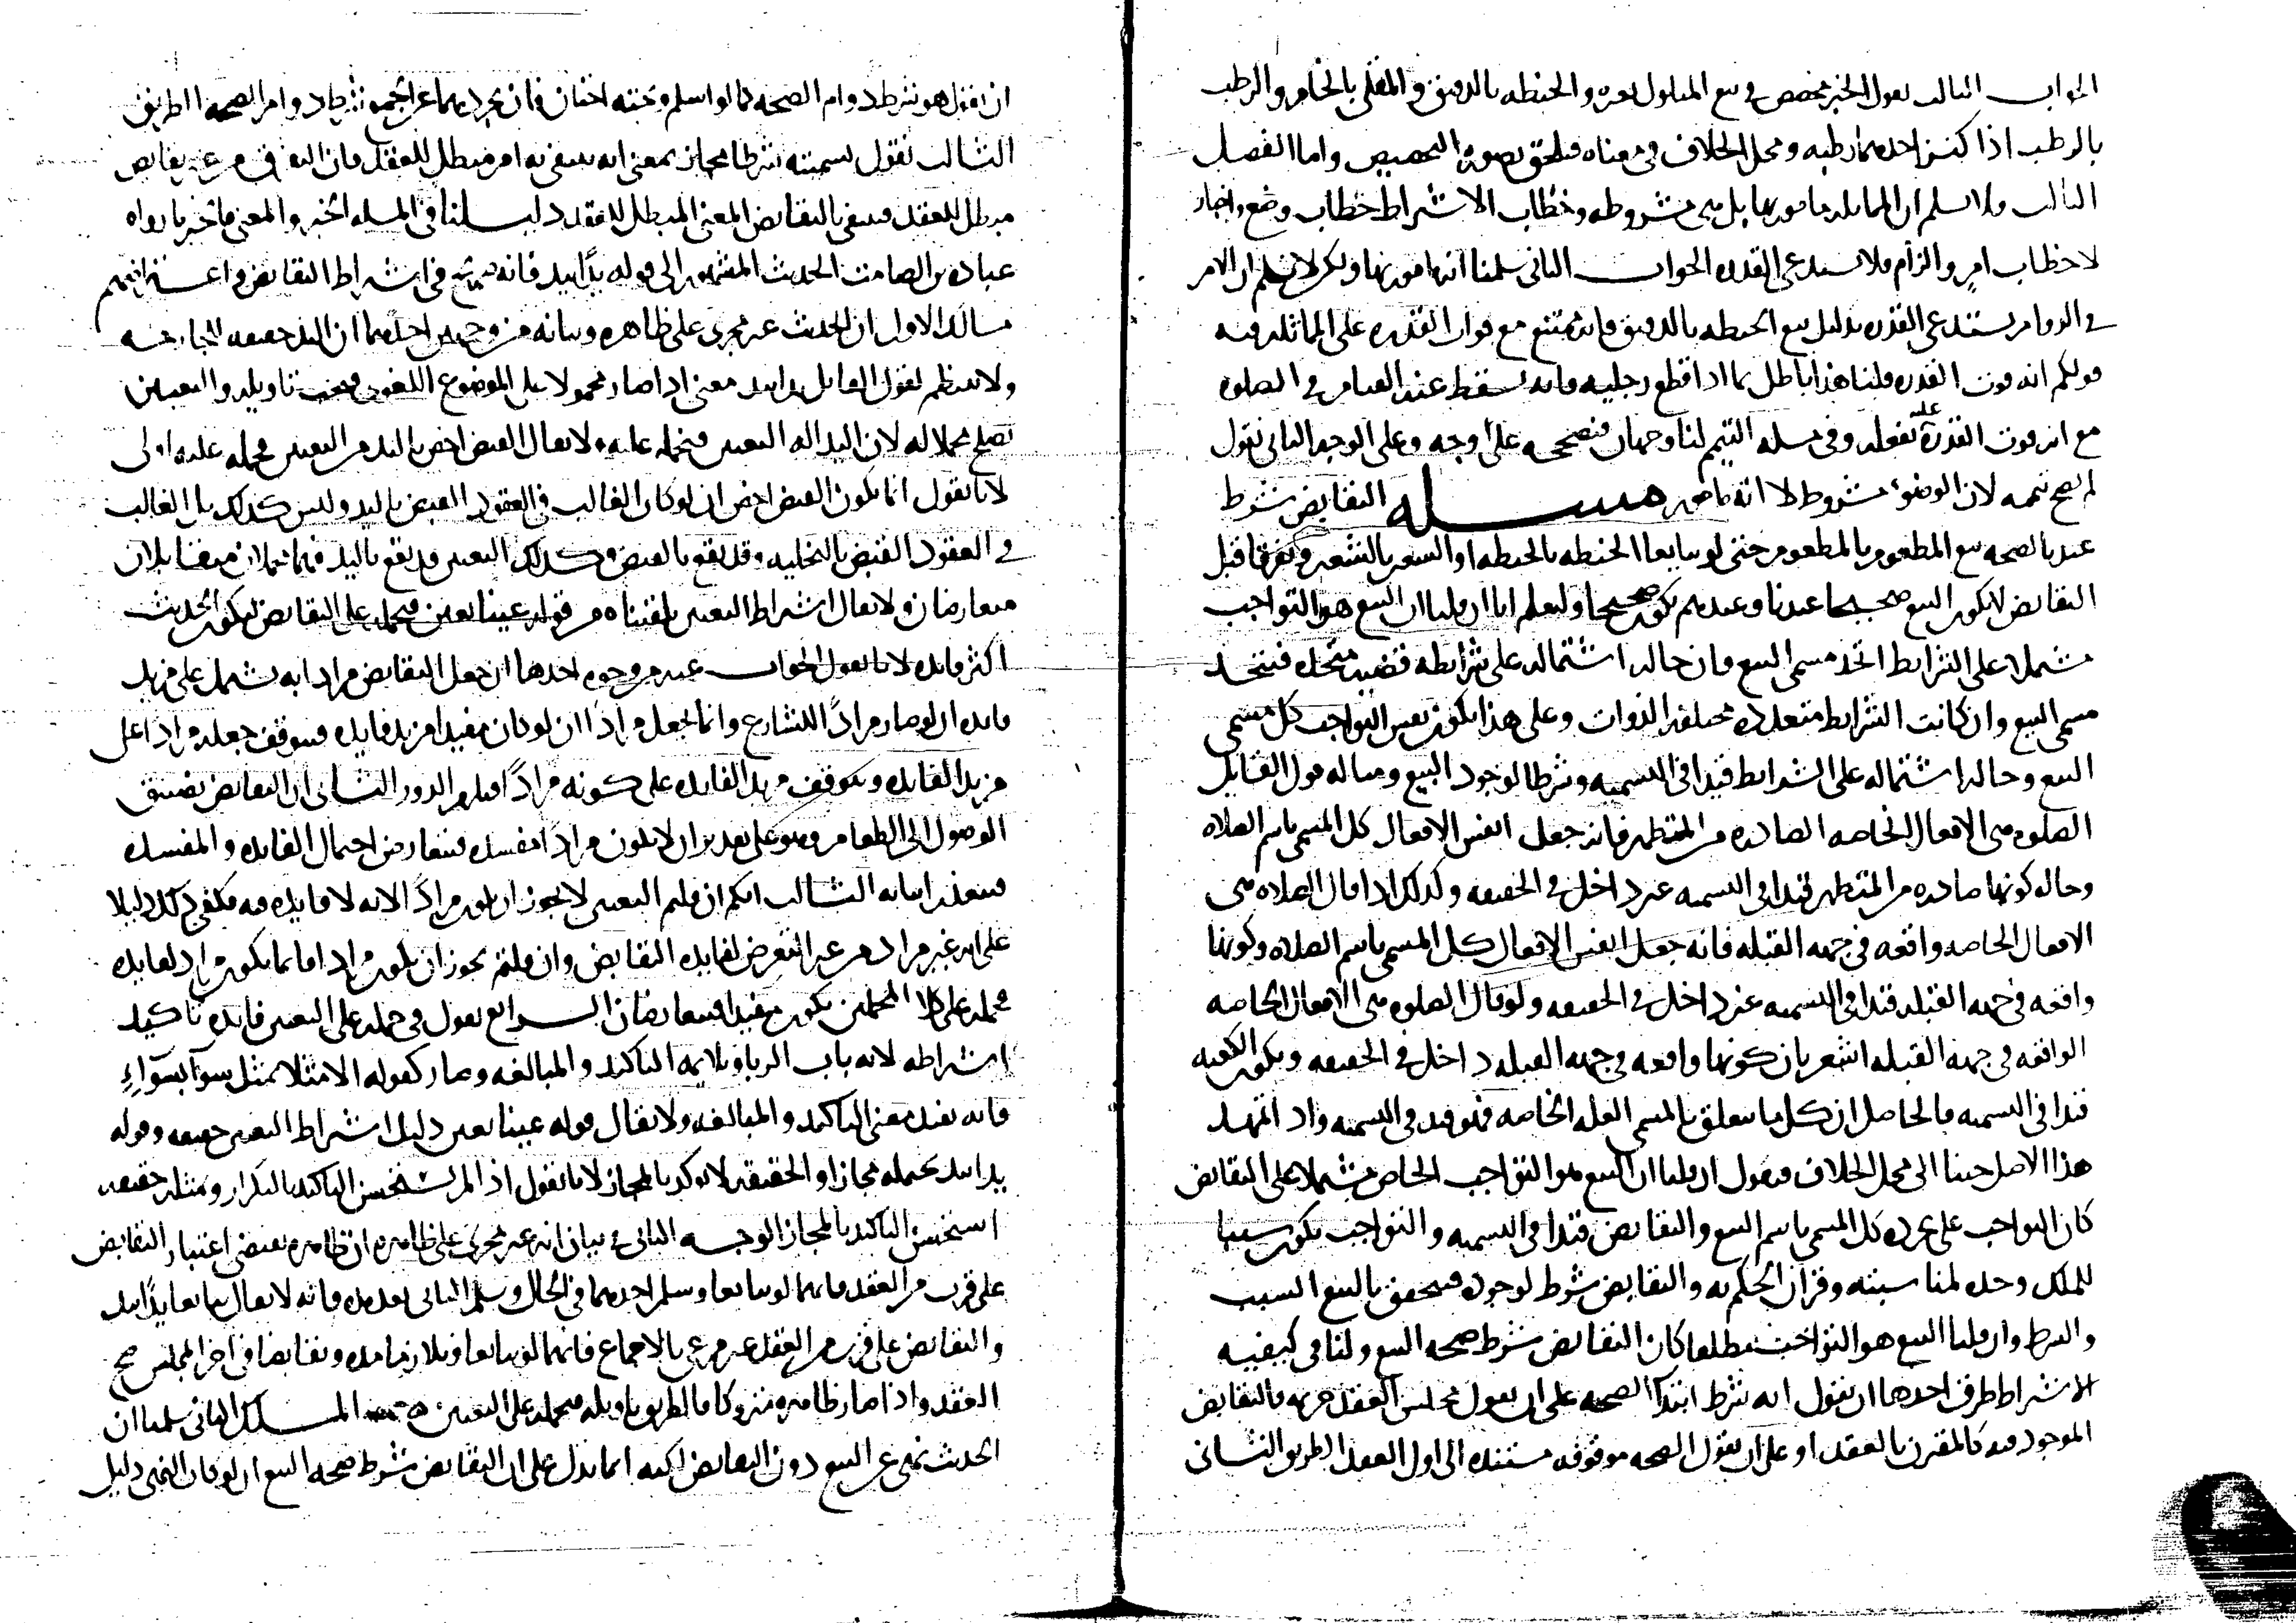 الجواب الثالث نقول الخبر مخصص في بيع المبلول بغيره والحنطه بالدقيق والمقلي بالخام والرطب
بالرطب اذا كنز احدهما رطبه ومحل الخلاف في معناه فيلحق بصوره التخصيص واما الفصل
الثالث ولا نسلم ان المماثله مامور بها بل هي مشروطه وخطاب الاشتراط خطاب وضع واخبار
لا خطاب امر والزام فلا يستدعي القدره الجواب الثاني سلمنا انها مامور بها ولكن لا نسلم ان الامر
في الدوام يستدعي القدره بدليل بيع الحنطه بالدقيق فانه ممتنع مع فوات القدره على المماثله فيه
قولكم انه فوت القدره قلنا هذا باطل بما اذا قطع رجليه فانه يسقط عنه القيام في الصلوه
مع انه فوت القدرة عليه بفعله وفي مسله التيمم لنا وجهان فنصححه على وجه وعلى الوجه الثاني نقول
لم يصح تيممه لان الوضوء مشروط لا انه مامور مسله التقابض شرط
عندنا لصحه بيع المطعوم بالمطعوم حتى لو تبايعا الحنطه بالحنطه او الشعير بالشعير وتفرقا قبل
التقابض لا يكون البيع صحيحا عندنا وعندهم يكون صحيحا وليعلم انا ان قلنا ان البيع هو التواجب
مشتملا على الشرايط اتحد مسمى البيع فان حاله اشتماله على شرايطه قضيه متحده فيتحد
مسمى البيع وان كانت الشرايط متعدده مختلفه الذوات وعلى هذا يكون نفس التواجب كل مسمى
البيع وحاله اشتماله على الشرايط قيدا في التسميه وشرطا لوجود البيع ومثاله قول القايل
الصلوه هي الافعال الخاصه الصادره من المتطهر فانه جعل انفس الافعال كل المسمى باسم الصلاه
وحاله كونها صادره من المتطهر قيدا في التسميه غير داخل في الحقيقه وكذلك اذا قال الصلاه هي
الافعال الخاصه واقعه في جهه القبله فانه جعل انفس الافعال كل المسمى باسم الصلاه وكونها
واقعه في جهه القبله قيدا في التسميه غير داخل في الحقيقه ولو قال الصلوه هي الافعال الخاصه
الواقعه في جهه القبله اشعر بان كونها واقعه في جهه القبله داخل في الحقيقه وتكون الكعبه
قيدا في التسميه فالحاصل ان كل ما يتعلق بالمسمى العله الخاصه فهو قيد في التسميه واذا تمهد
هذا الاصل جينا الى محل الخلاف فنقول ان قلنا ان البيع هو التواجب الخاص مشتملا على التقابض
كان التواجب على تجرده كل المسمى باسم البيع والتقابض قيدا في التسميه والتواجب يكون سببا
للملك وحده لمناسبته وقران الحكم به والتقابض شرط لوجوده فيتحقق بالبيع السبب
والشرط وان قلنا البيع هو التواجب مطلقا كان التقابض شرط صحه البيع ولنا في كيفيه
الاشتراط طرق احدها ان نقول انه شرط ابتدا الصحه على ان نقول مجلس العقد حريمه فالتقابض
الموجود فيه كالمقترن بالعقد او على ان نقول الصحه موقوفه مستنده الى اول العقد الطريق الثاني
ان نقول هو شرط دوام الصحه كما لو اسلم وتحته اختان فان تجردهما عن الجمع شرط دوام الصحه الطريق
الثالث نقول تسميته شرطا مجاز بمعنى انه ينتفي به امر مبطل للعقد فان التفرق من غير تقابض
مبطل للعقد فينتفي بالتقابض المعنى المبطل للعقد دليلنا في المسله الخبر والمعنى فالخبر ما رواه
عباده بن الصامت الحديث المشهور الى قوله يدًا بيد فانه صريح في اشتراط التقابض واعتراضهم
مسالك الاول ان الحديث غير مجرى على ظاهره وبيانه من وجهين احدهما ان اليد حقيقه الجارحه
ولا ينتظم لقول القايل يدا بيد معنى اذا صار محمولا على الموضوع اللغوي فيجب تاويله والتعيين
يصلح محملا له لان اليد اله التعيين فيحمل عليه ولا يقال القبض اخص باليد من التعيين فحمله عليه اولى
لانا نقول انما يكون القبض اخص ان لو كان الغالب في العقود القبض باليد وليس كذلك بل الغالب
في العقود القبض بالتخليه وقد يقع بالقبض وكذلك التعيين قد يقع باليد فهما محملان متقابلان
متعارضان ولا يقال اشتراط التعيين تلقيناه من قوله عينا بعين فيحمل على التقابض ليكون الحديث
اكثر فايده لانا نقول الجواب عنه من وجوه احدها ان جعل التقابض مرادا به يشتمل على مزيد
فايده ان لو صار مرادًا للشارع وانما يجعل مرادًا ان لو كان مفيدا مزيد فايده فيتوقف جعله مرادا على
مزيد الفايده ويتوقف مزيد الفايده على كونه مرادًا فيلزم الدور الثاني ان التقابض يضيق
الوصول الى الطعام وهو على تقدير ان لا يكون مرادًا مفسده فيتعارض احتمال الفايده والمفسده
فيتعذر اثباته الثالث انكم ان قلتم التعيين لا يجوز ان يكون مرادًا الا انه لا فايده فيه فيكفي ذلك دليلا
على انه غير مراد من غير التعرض لفايده التقابض وان قلتم يجوز ان يكون مرادا فانما يكون مرادا لفايده
فحمله على كلا المحملين يكون مفيدا فيتعارضان الرابع نقول في حمله على التعيين فايده تاكيد
اشتراطه لانه باب الربا ويلايمه التاكيد والمبالغه وصار كقوله الا مثلا بمثل سوآ بسوآءٍ
فانه يفيد معنى التاكيد والمبالغه ولا يقال قوله عينا بعين دليل اشتراط التعيين حقيقه وقوله
يدا بيد يحمله مجازا والحقيقه لا توكد بالمجاز لانا نقول اذا لم يستحسن التاكيد بالتكرار وبمثله حقيقه
استحسن التاكيد بالمجاز الوجه الثاني في بيان انه غير مجرى على ظاهره ان ظاهره يقتضي اعتبار التقابض
على قرب من العقد فانهما لو تبايعا وسلم احدهما في الحال وسلم الثاني بعد مده فانه لا يقال تبايعا يدًا بيد
والتقابض على قرب من العقد غير مرعي بالاجماع فانهما لو تبايعا وتلازما مده وتقابضا في اخر المجلس صح
العقد واذا صار ظاهره متروكا فالطريق تاويله فيحمله على التعيين المسلك الثاني سلمنا ان
الحديث نهى عن البيع دون التقابض لكنه انما يدل على ان التقابض شرط صحه البيع ان لو كان النهي دليل